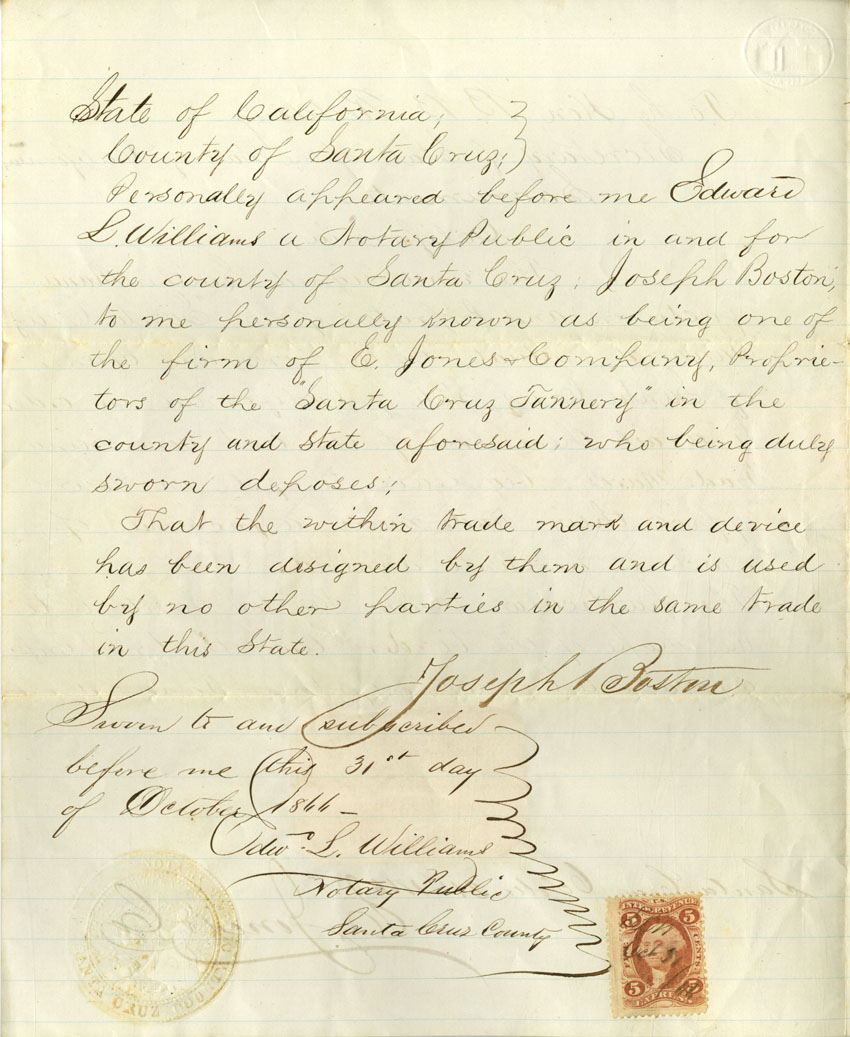 State of California,
County of Santa Cruz;
Personally appeared before me Edward
L. Williams a Notary Public in and for
the county of Santa Cruz; Joseph Boston,
to me personally known as being one of
the firm of E. Jones & Company, Proprie-
tors of the "Santa Cruz Tannery" in the
county and state aforesaid; who being duly
sworn deposes;
That the within trade mark and device
has been designed by them and is used
by no other parties in the same trade
in this State.
Joseph Boston
Sworn to and subscribed
before me this 31st day
of October 1866 –
Edwd. L. Williams
Notary Public
Santa Cruz County
INTER. REVENUE
5 5
CENTS
Oct 31
5 5
EXPRESS
SANTA CRUZ COUNTY